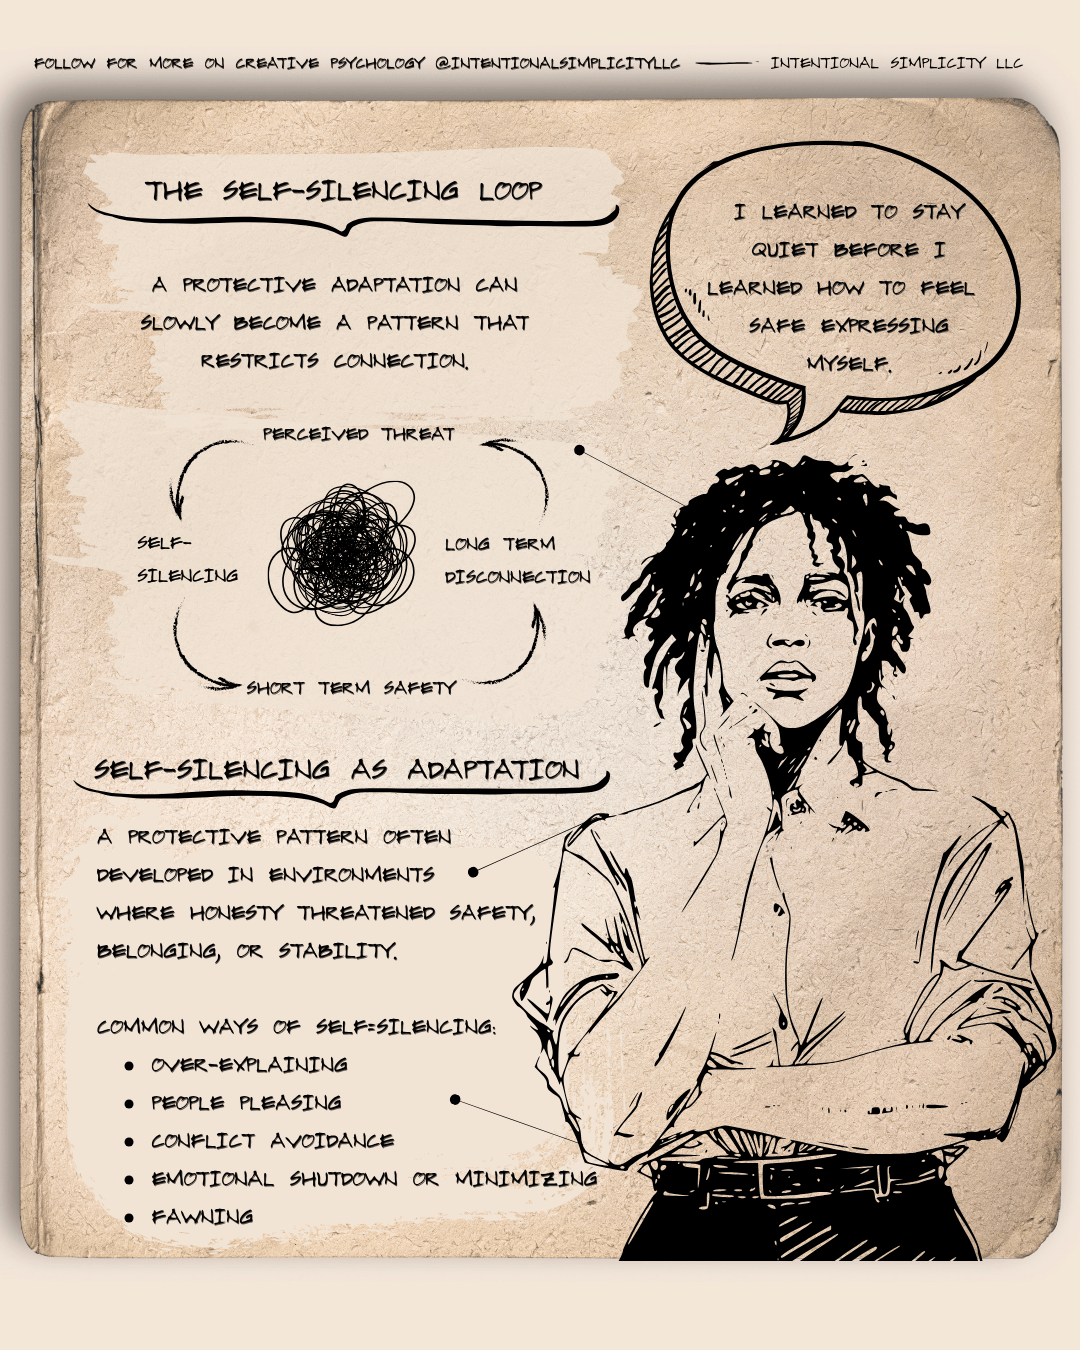 FOLLOW FOR MORE ON CREATIVE PSYCHOLOGY @INTENTIONALSIMPLICITYLLC —— INTENTIONAL SIMPLICITY LLC
THE SELF-SILENCING LOOP
A PROTECTIVE ADAPTATION CAN
SLOWLY BECOME A PATTERN THAT
RESTRICTS CONNECTION.
I LEARNED TO STAY
QUIET BEFORE I
LEARNED HOW TO FEEL
SAFE EXPRESSING
MYSELF.
PERCEIVED THREAT
SELF-
SILENCING
LONG TERM
DISCONNECTION
SHORT TERM SAFETY
SELF-SILENCING AS ADAPTATION
A PROTECTIVE PATTERN OFTEN
DEVELOPED IN ENVIRONMENTS
WHERE HONESTY THREATENED SAFETY,
BELONGING, OR STABILITY.
COMMON WAYS OF SELF=SILENCING:
• OVER-EXPLAINING
• PEOPLE PLEASING
• CONFLICT AVOIDANCE
• EMOTIONAL SHUTDOWN OR MINIMIZING
• FAWNING